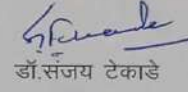 डॉ.संजय टेकाडे